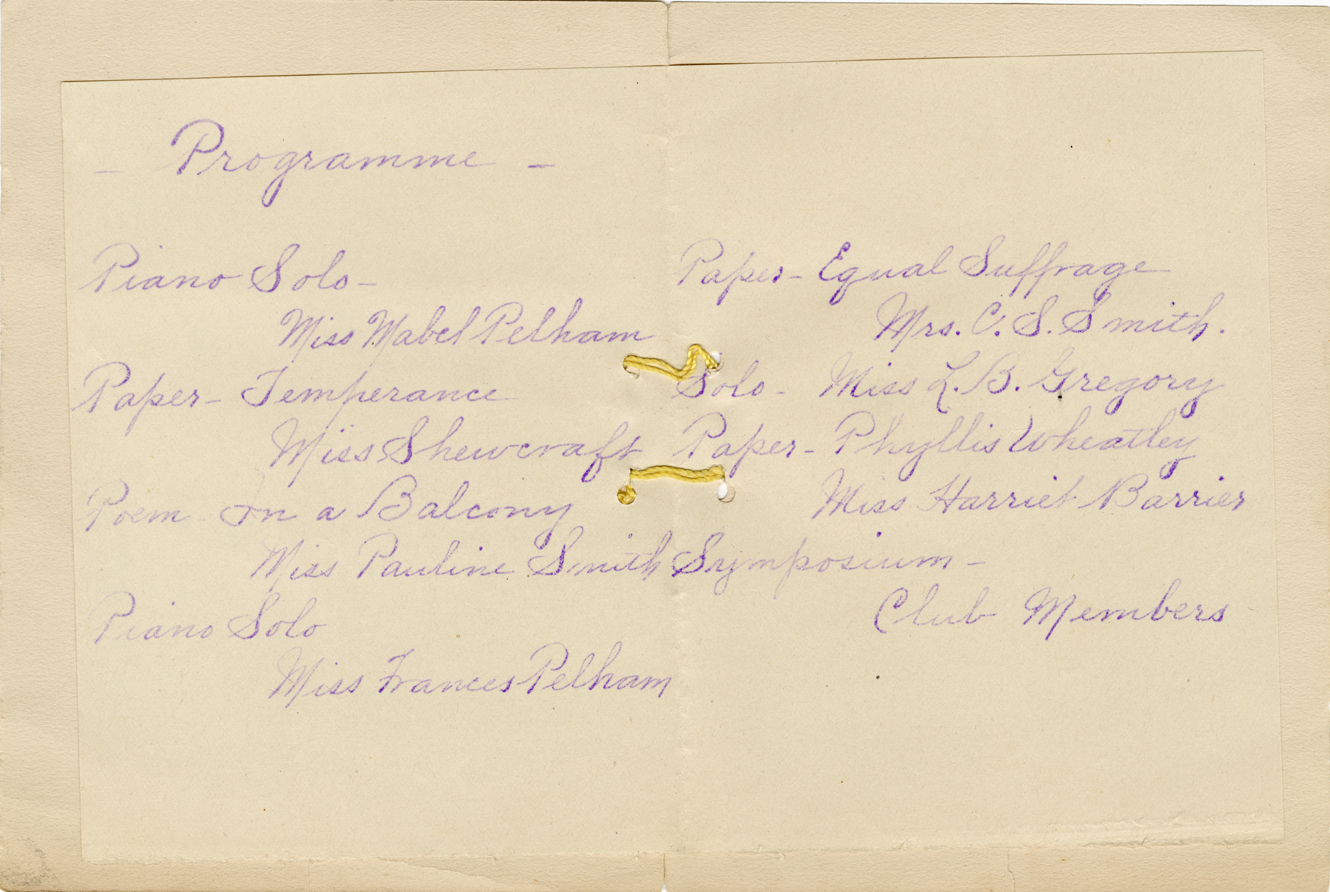 - Programme -
Piano Solo -
Miss Mabel Pelham
Paper - Temperance
Miss Shewcraft
Poem In a Balcony
Miss Pauline Smith
Piano Solo
Miss Frances Pelham
Paper - Equal Suffrage
Mrs. C. S. Smith.
Solo - Miss L. B. Gregory
Paper - Phyllis Wheatley
Miss Harriet Barrier
Symposium -
Club Members